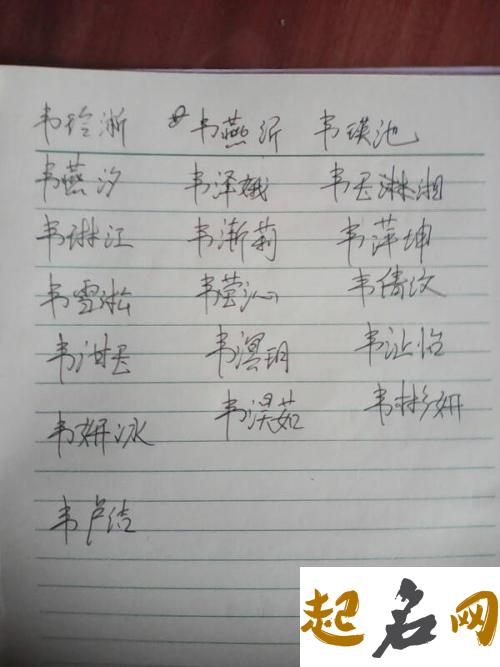 韦玲浙 韦燕沂 韦瑛池
韦燕汐 韦泽娥 韦玉淋湘
韦琳江 韦渐莉 韦萍坤
韦雪淞 韦莹沁 韦倩汶
韦泔玉 韦溟玥 韦沚怡
韦妍冰 韦淏茹 韦彬妍
韦卢洁
起名网